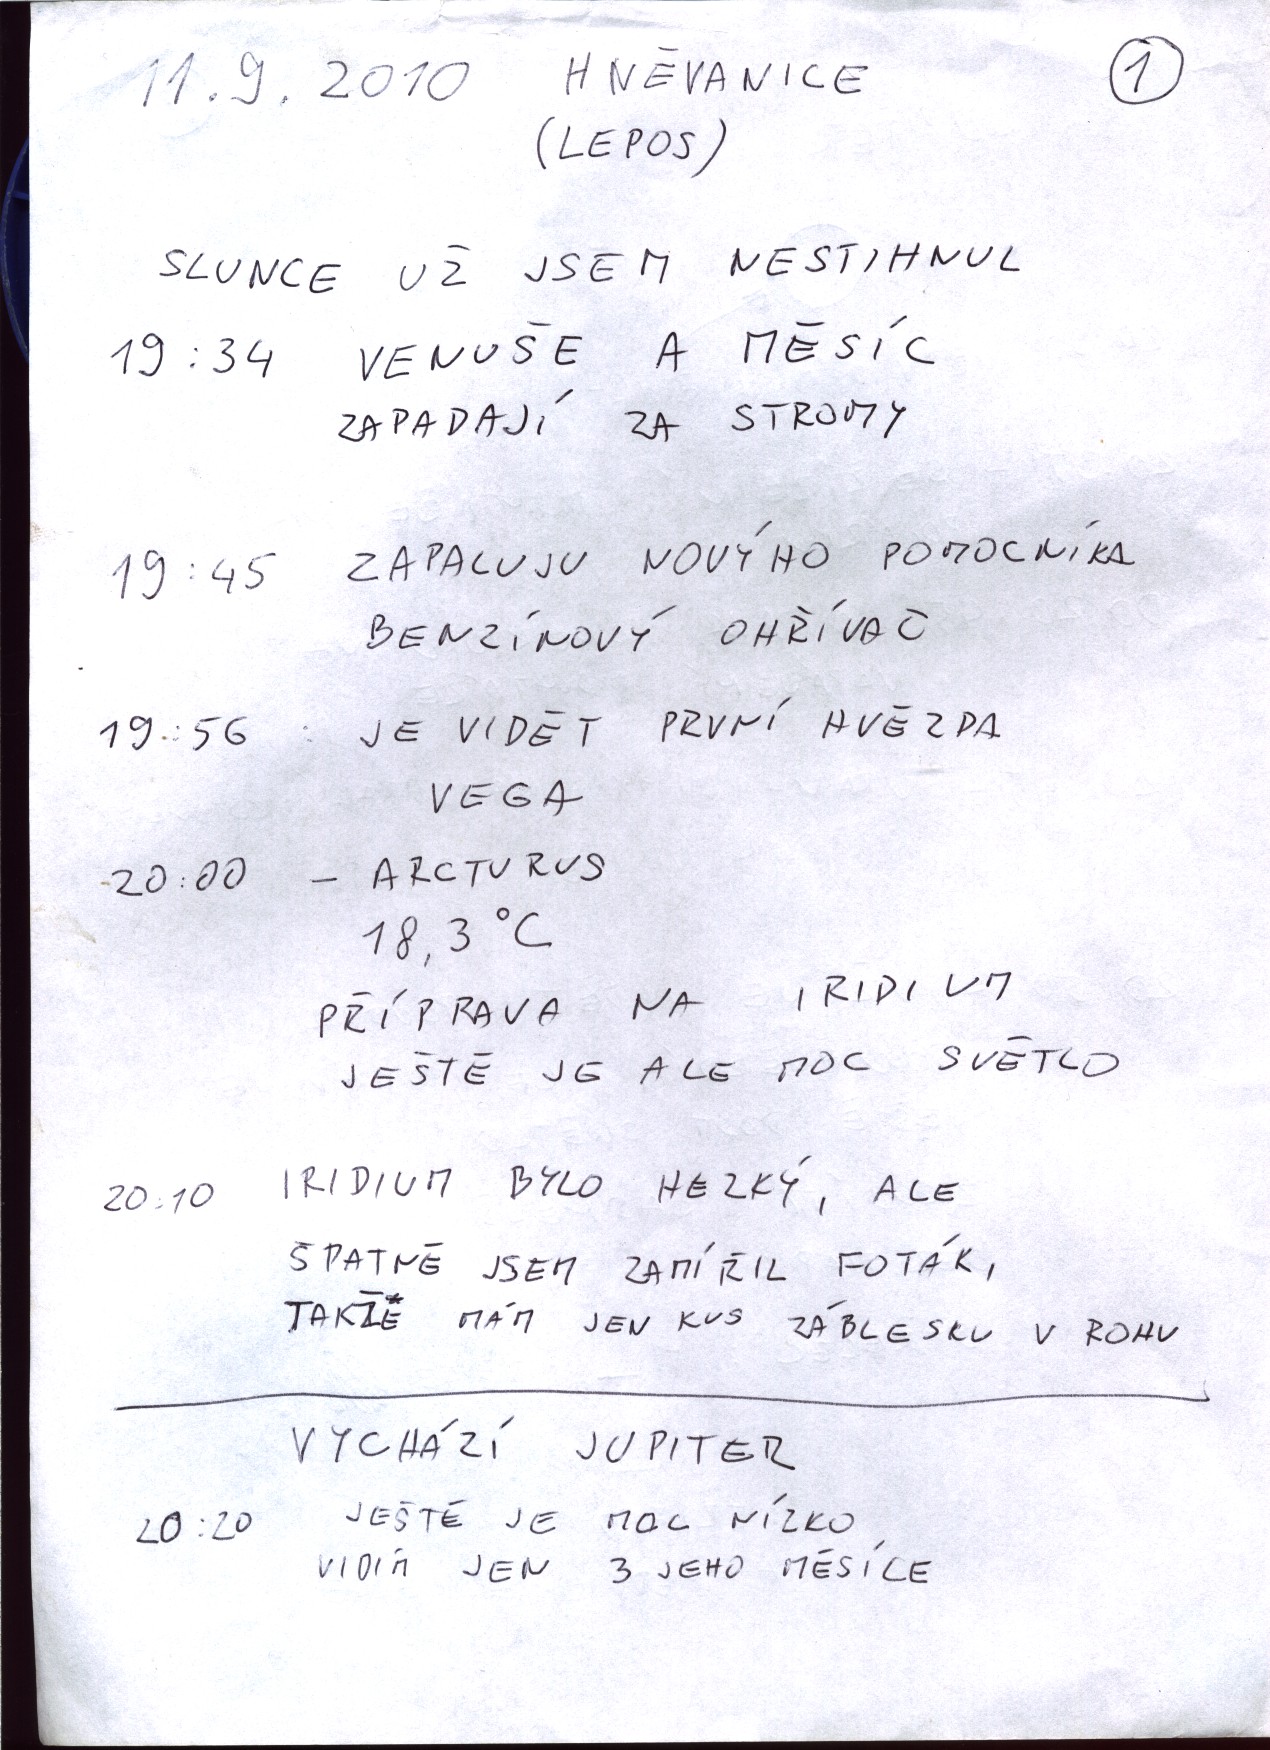 11.9.2010 HNĚVANICE ①
(LEPOS)
SLUNCE UŽ JSEM NESTIHNUL
19:34 VENUŠE A MĚSÍC
ZAPADAJÍ ZA STROMY
19:45 ZAPALUJU NOVÝHO POMOCNÍKA
BENZÍNOVÝ OHŘÍVAČ
19:56 : JE VIDĚT PRVNÍ HVĚZDA
VEGA
20:00 – ARCTURUS
18,3 °C
PŘÍPRAVA NA IRIDIUM
JEŠTĚ JE ALE MOC SVĚTLO
20:10 IRIDIUM BYLO HEZKÝ, ALE
ŠPATNĚ JSEM ZAMÍŘIL FOTÁK,
TAKŽE MÁM JEN KUS ZÁBLESKU V ROHU
VYCHÁZÍ JUPITER
20:20 JEŠTĚ JE MOC NÍZKO
VIDÍM JEN 3 JEHO MĚSÍCE